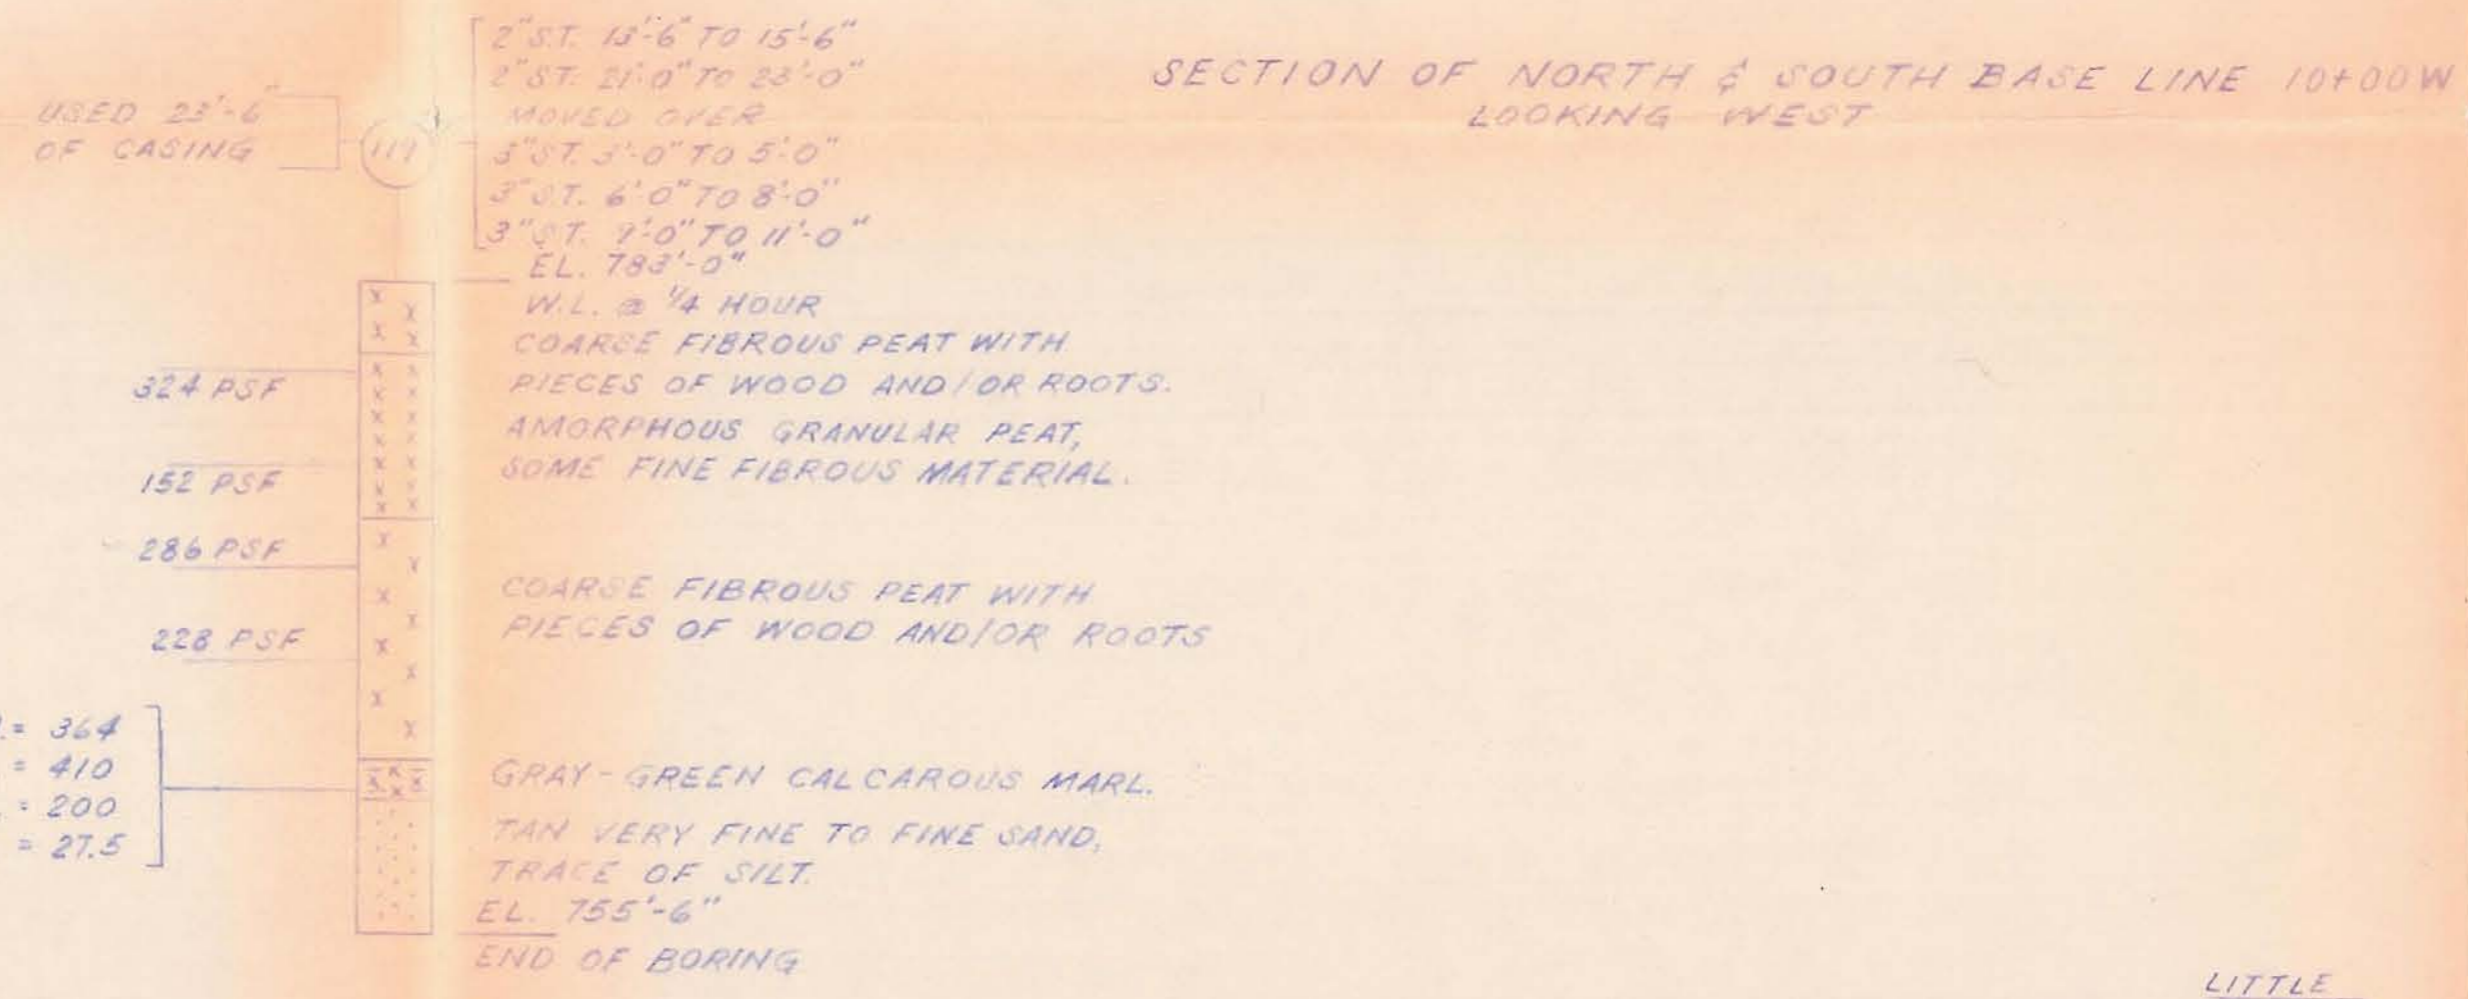 2" S.T. 13'-6" TO 15'-6"
2" S.T. 21'-0" TO 23'-0"
MOVED OVER
3" S.T. 3'-0" TO 5'-0"
3" S.T. 6'-0" TO 8'-0"
3" S.T. 9'-0" TO 11'-0"
USED 23'-6"
OF CASING
119
SECTION OF NORTH & SOUTH BASE LINE 10+00 W
LOOKING WEST
EL. 783'-0"
W.L. @ 1/4 HOUR
COARSE FIBROUS PEAT WITH
PIECES OF WOOD AND/OR ROOTS.
324 PSF
AMORPHOUS GRANULAR PEAT,
SOME FINE FIBROUS MATERIAL.
152 PSF
286 PSF
COARSE FIBROUS PEAT WITH
PIECES OF WOOD AND/OR ROOTS
228 PSF
= 364
= 410
= 200
= 27.5
GRAY-GREEN CALCAROUS MARL.
TAN VERY FINE TO FINE SAND,
TRACE OF SILT.
EL. 755'-6"
END OF BORING
LITTLE